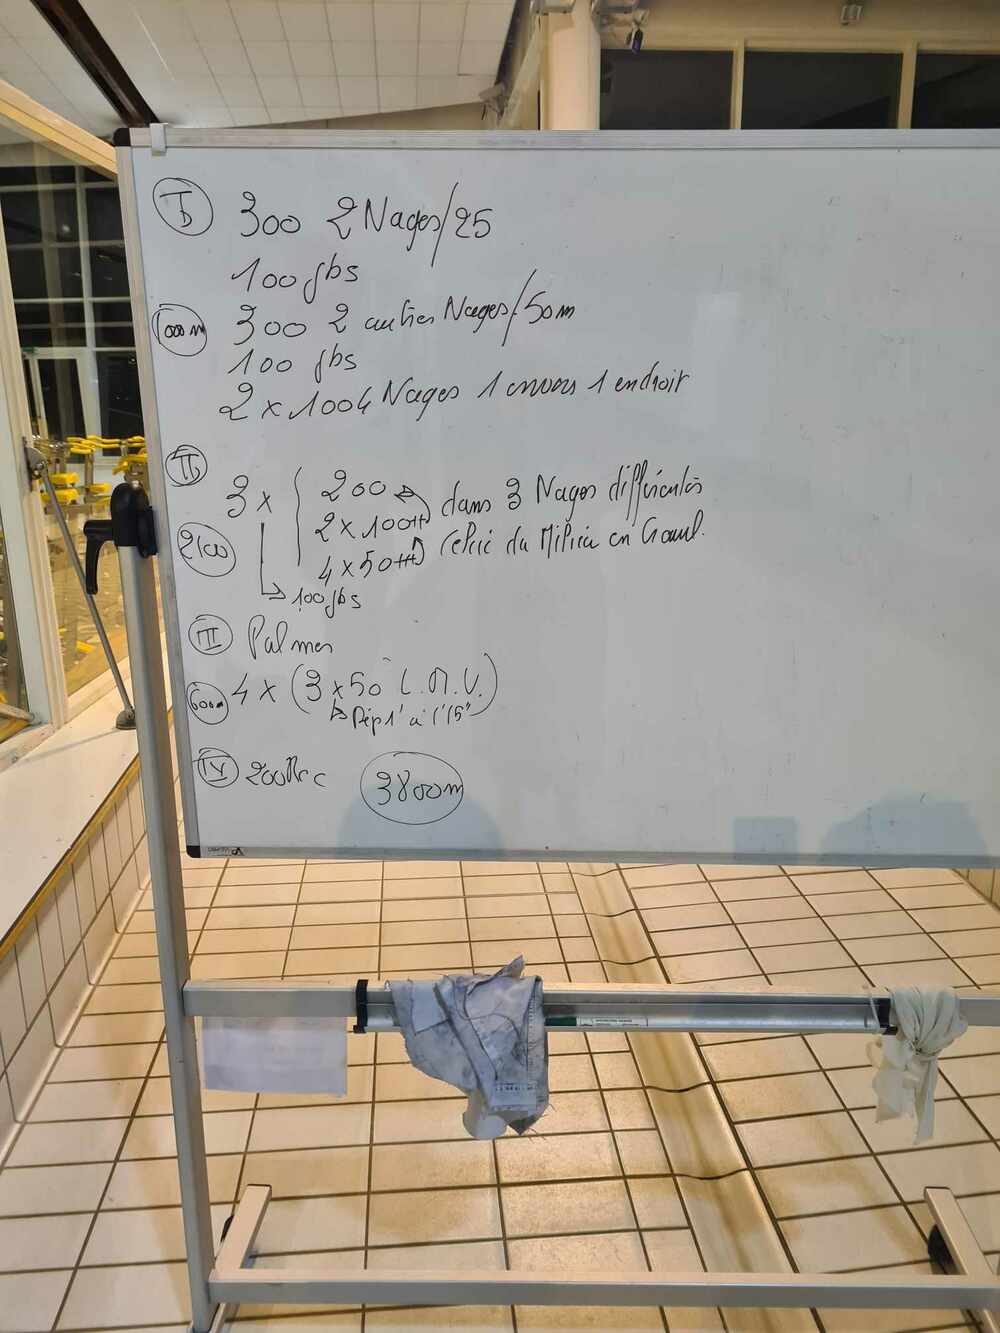 I 300 2 Nages/25
100 jbs
1000m 300 2 autres Nages/50m
100 jbs
2 x 100 4 Nages 1 envers 1 endroit
II
3 x 200 dans 3 Nages différentes
2 x 100
2100 4 x 50 Celui du Milieu en Crawl.
100 jbs
III Palmes
600m 4 x (3 x 50 L.M.V.)
Dép 1' à 1'15"
IV 200 Rec 3800m